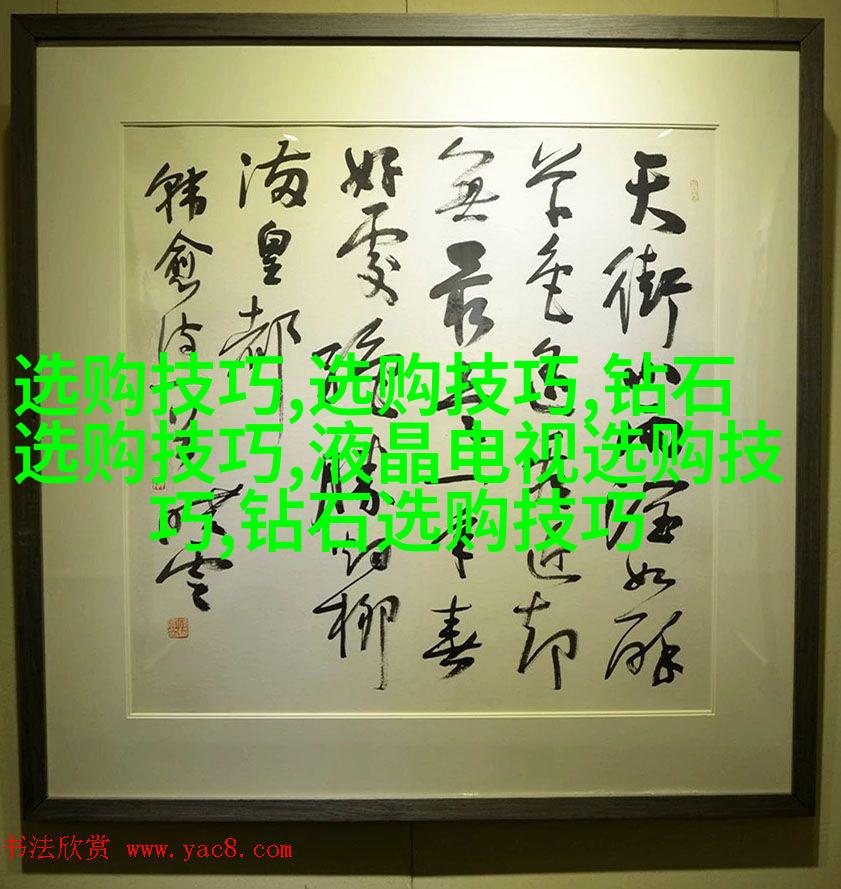 天街小雨潤如酥
草色遥看近却
無最是一年春
好處絕勝烟柳
滿皇都
韓愈诗
选购技巧,选购技巧,钻石
选购技巧,液晶电视选购技
巧,钻石选购技巧
书法欣赏 www.yac8.com